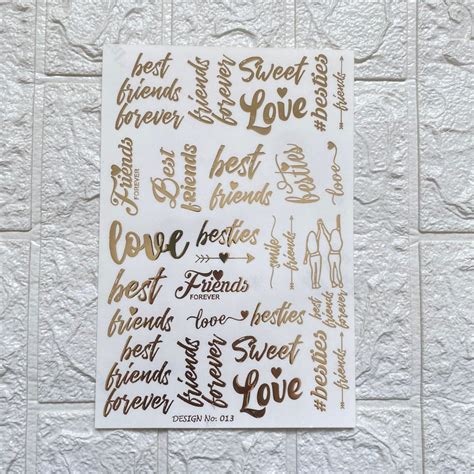 best
friends
forever
friends
forever
Sweet
Love
#besties
friends
Friends
FOREVER
Best
friends
best
friends
besties
love
love
besties
smile
friends
best
friends
Friends
FOREVER
love
besties
friends
forever
best
friends
forever
friends
forever
Sweet
Love
#besties
friends
DESIGN No: 013